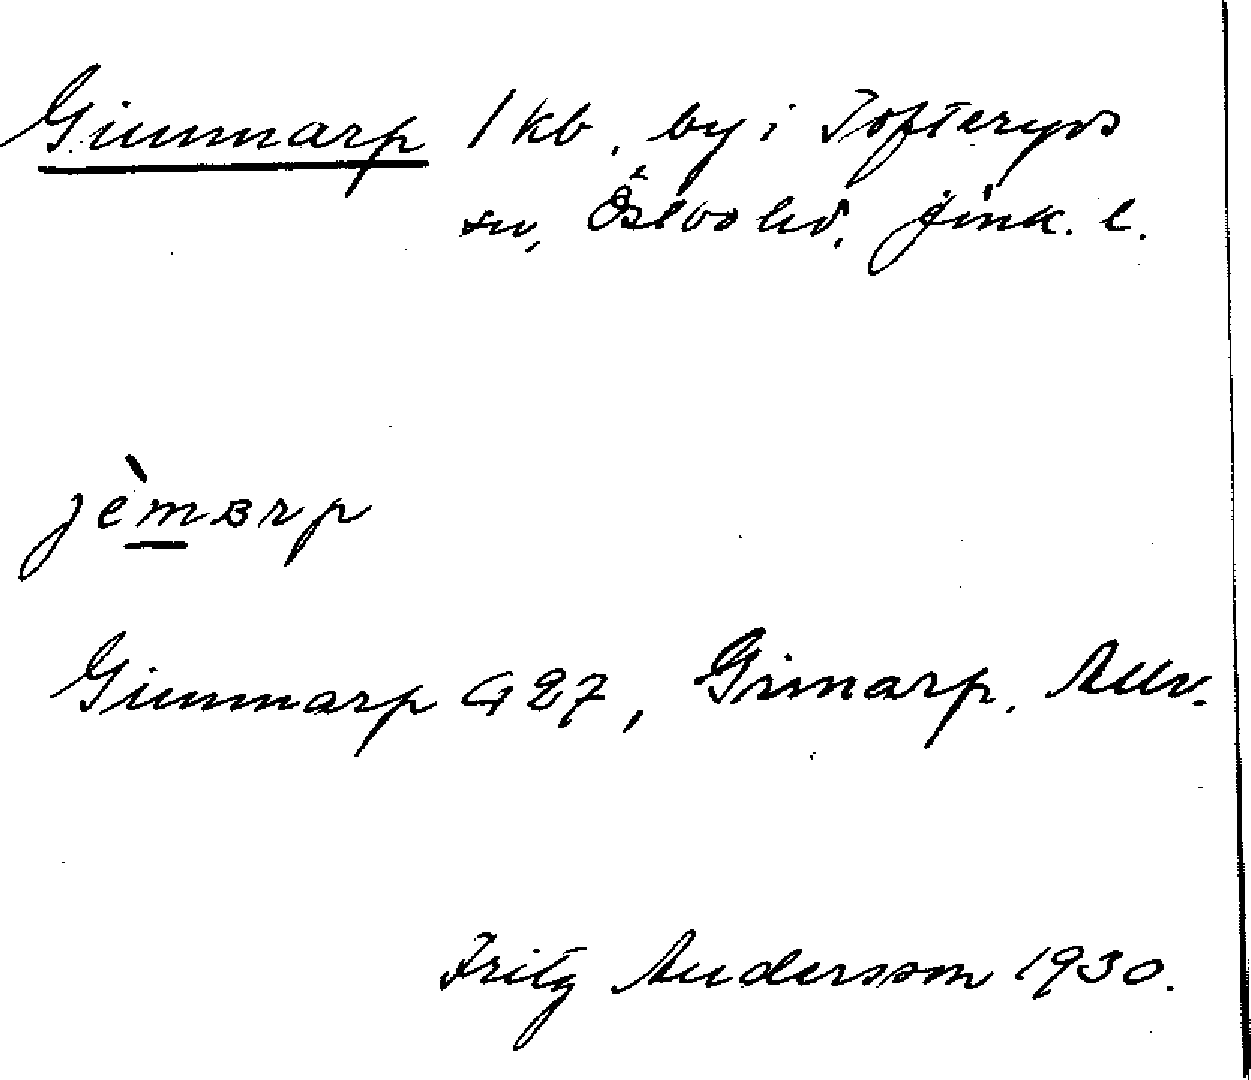 Gimmarp 1 kb. by i Tofteryds
sn, Östbo hd, jönk. l.
jèmarp
Gimmarp G 27, Gimarp.
Fritz Andersson 1930.